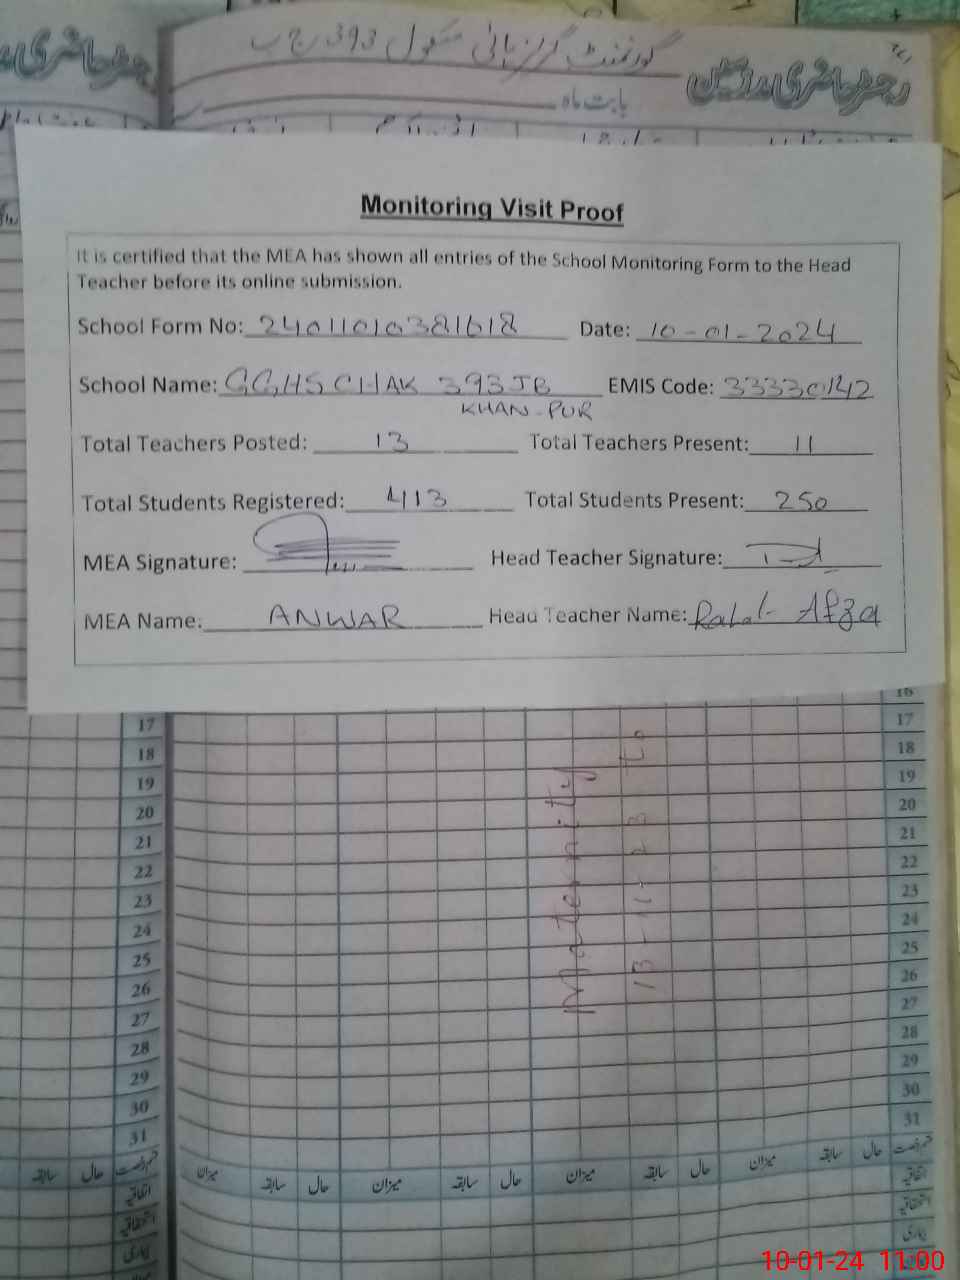 گورنمنٹ گرلز ہائی سکول 393 ج ب
رجسٹر حاضری مدرسین
بابت ماہ
Monitoring Visit Proof
It is certified that the MEA has shown all entries of the School Monitoring Form to the Head
Teacher before its online submission.
School Form No: 24011010381618 Date: 10-01-2024
School Name: GGHS CHAK 393JB EMIS Code: 33330142
KHAN-PUR
Total Teachers Posted: 13 Total Teachers Present: 11
Total Students Registered: 413 Total Students Present: 250
MEA Signature: Head Teacher Signature:
MEA Name: ANWAR Head Teacher Name: Afza
16
17 17
18 18
19 19
20 20
21 21
22 22
23 23
24 24
25 25
26 26
27 27
28 28
29 29
30 30
31 31
Maternity
13-11-23 to
قسم رخصت حال سابقہ میزان حال سابقہ میزان حال سابقہ میزان قسم رخصت حال سابقہ
اتفاقیہ اتفاقیہ
استحقاقیہ استحقاقیہ
بیماری بیماری
10-01-24 11:00